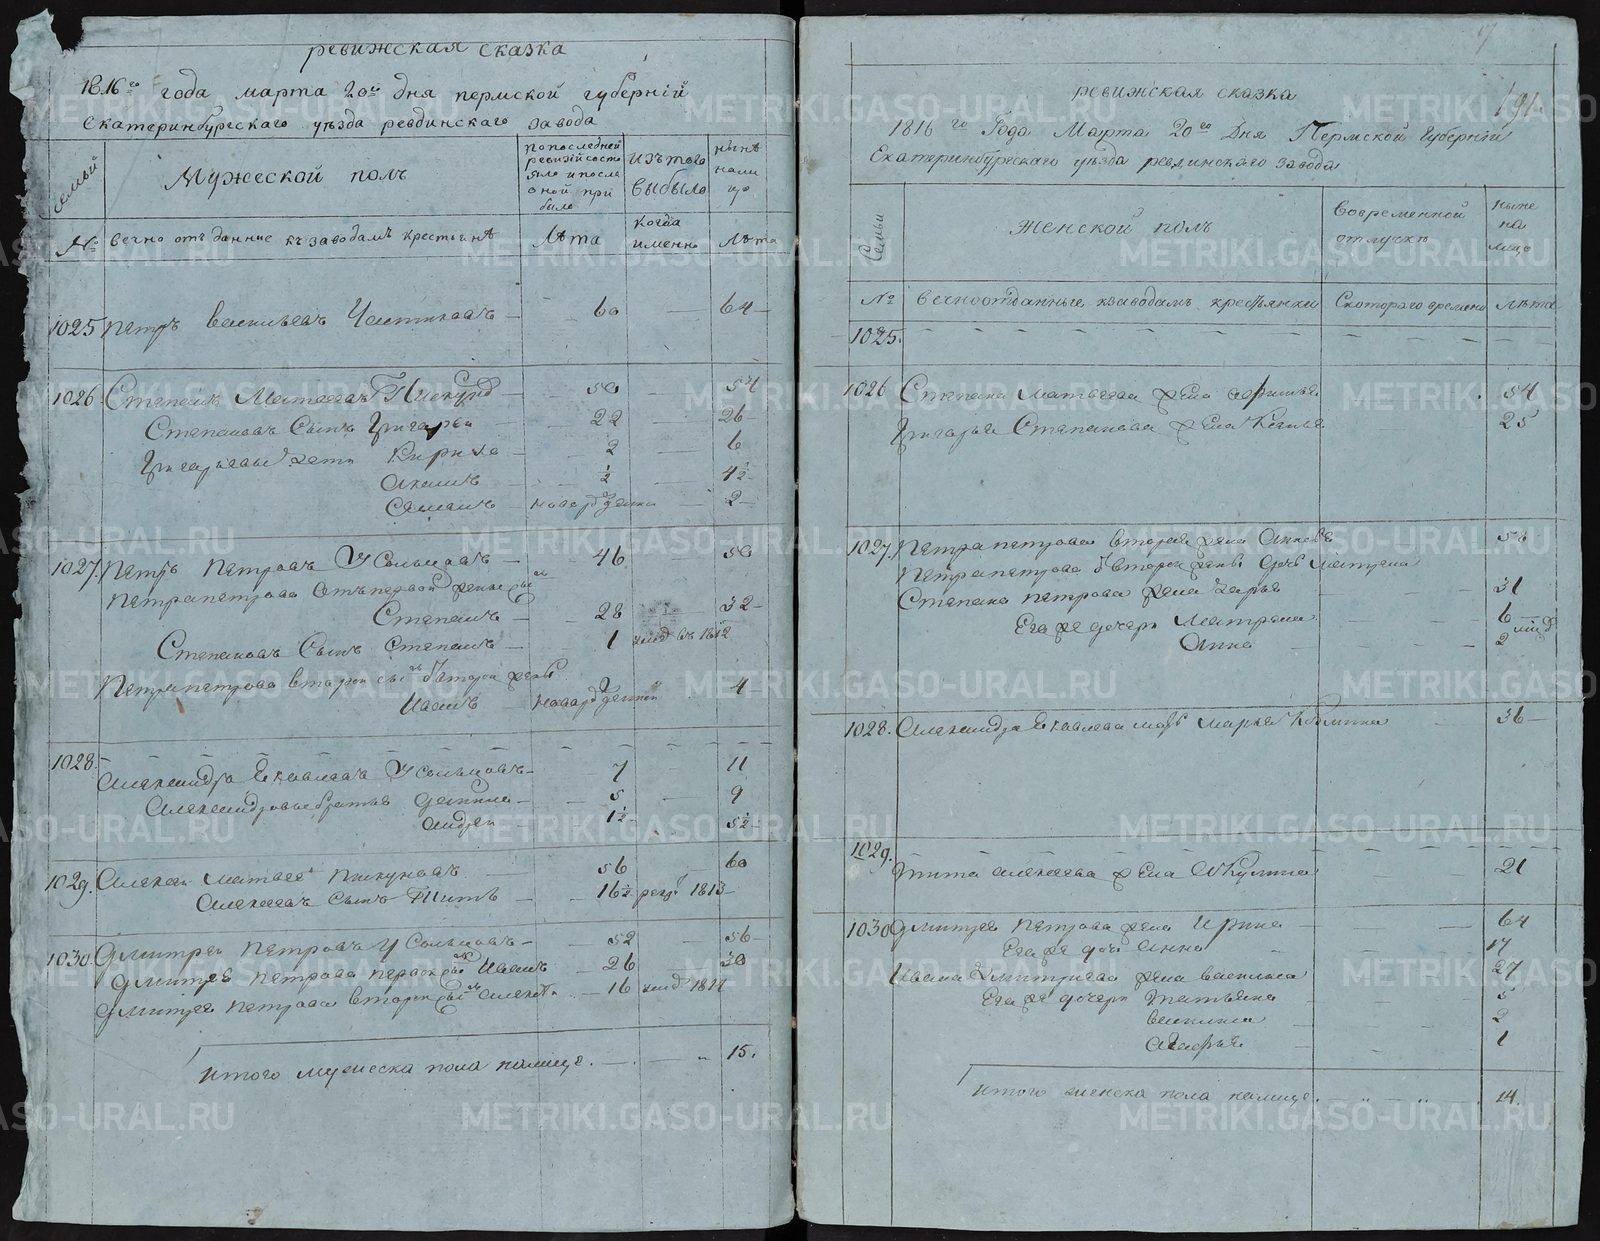 ревижская сказка
1816го года марта 20го дня пермской губерніи
екатеринбургскаго уѣзда ревдинскаго завода
семьи
Мужеской полъ
по последней ревизіи состояло и после оной прибыло
изъ того выбыло
нынѣ на лицо
№
вечно отъданние къ заводамъ крестьянѣ
Лѣта
когда именно
лѣта
1025 Петръ Васильевъ 60 64
1026 Степанъ Матвеевъ 50 54
Степановъ Сынъ Григорей 22 26
Григорьевы дети Кирило 2 6
Акимъ ½ 4½
Семенъ новорожденной 2
1027. Петръ Петровъ Усольцовъ 46 50
Петра петрова отъ первой жены сынъ
Степанъ 28 32
Степановъ Сынъ Степанъ 1 умер въ 1812
Петра петрова второй сынъ от второй жены
Иванъ новорожденной 4
1028. Александръ Яковлевъ Усольцовъ 7 11
Александровы братья 5 9
Андрей 1½ 5½
1029. Алексей Матвеевъ Пискуновъ 56 60
Алексеевъ сынъ Титъ 16½ рекру 1813
1030 Дмитрей Петровъ Усольцовъ 52 56
Дмитрея Петрова первой сынъ Иванъ 26 30
Дмитрея Петрова второй сынъ 16 умер 1811
Итого мужеска пола налице. 15.
191
ревижская сказка
1816го Года Марта 20го Дня Пермской Губерніи
Екатеринбургскаго уѣзда ревдинскаго завода
Семьи
Женской полъ
Вовременной отлучкѣ
ныне на лицо
№
вечноотданныя кзаводамъ крестьянки
Скоторого времени
лѣта
1025.
1026 Степана Матвеева жена 54
Григорья Степанова жена 25
1027. Петра петрова вторая жена 50
Петра петрова от второй жены дочь Матрена
Степана петрова жена Дарья 31
Его же дочери Матрена 6
Анна 2
1028. Александра Яковлева мать Марья 36
1029.
Тита алексеева жена Акулина 21
1030 Дмитрея Петрова жена Ирина 64
Его же дочь Анна 17
Ивана Дмитриева жена василиса 27
Его же дочери Татьяна 5
2
1
итого женска пола налице. 14.
METRIKI.GASO-URAL.RU